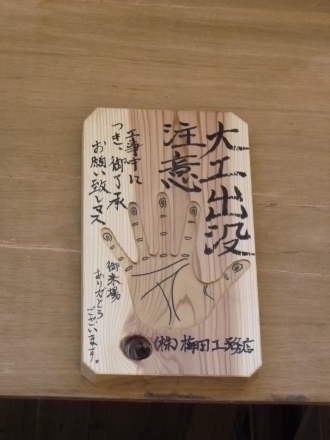 大工出没
注意
工事中に
つき、御了承
お願い致しマス
御来場
ありがとう
ございます。
(株)梅田工務店